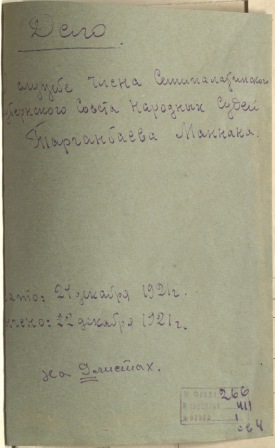 Дело.
службе члена Семипалатинского
бернского Совета Народных Судей
Тарчанбаева Маннана.
чато: 21 декабря 1921г.
нчено: 22 декабря 1921г.
на 9 листах.
266
411
1